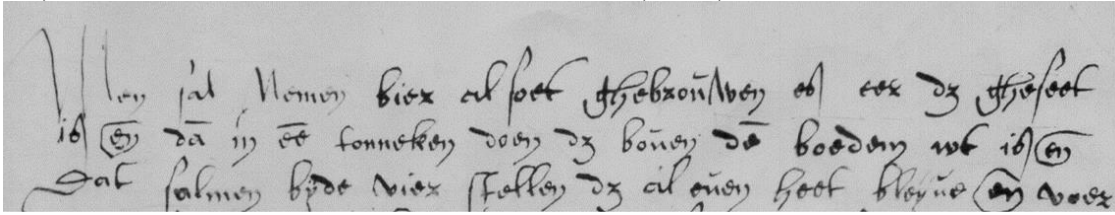 Men sal Nemen bier alsoet ghebrouwen es eer dz gheseet
is en̄ dā in ēē tonneken doen dz boūen dē boedem wt is en̄
Dat salmen byde vier stellen dz al eūen heet bleyūe en̄ voer